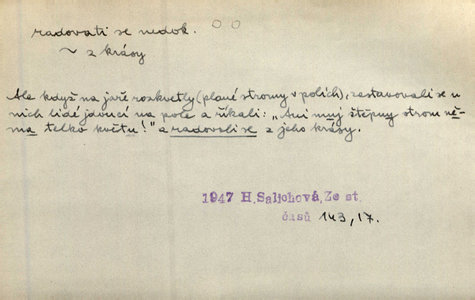 radovati se nedok.
~ z krásy
Ale když na jaře rozkvetly (plané stromy v polích), zastavovali se u
nich lidé jdoucí na pole a říkali: „Ani muj štěpny strom ně-
ma telko květu!" a radovali se z jeho krásy.
1947 H. Salichová, Ze st.
časů 143, 17.